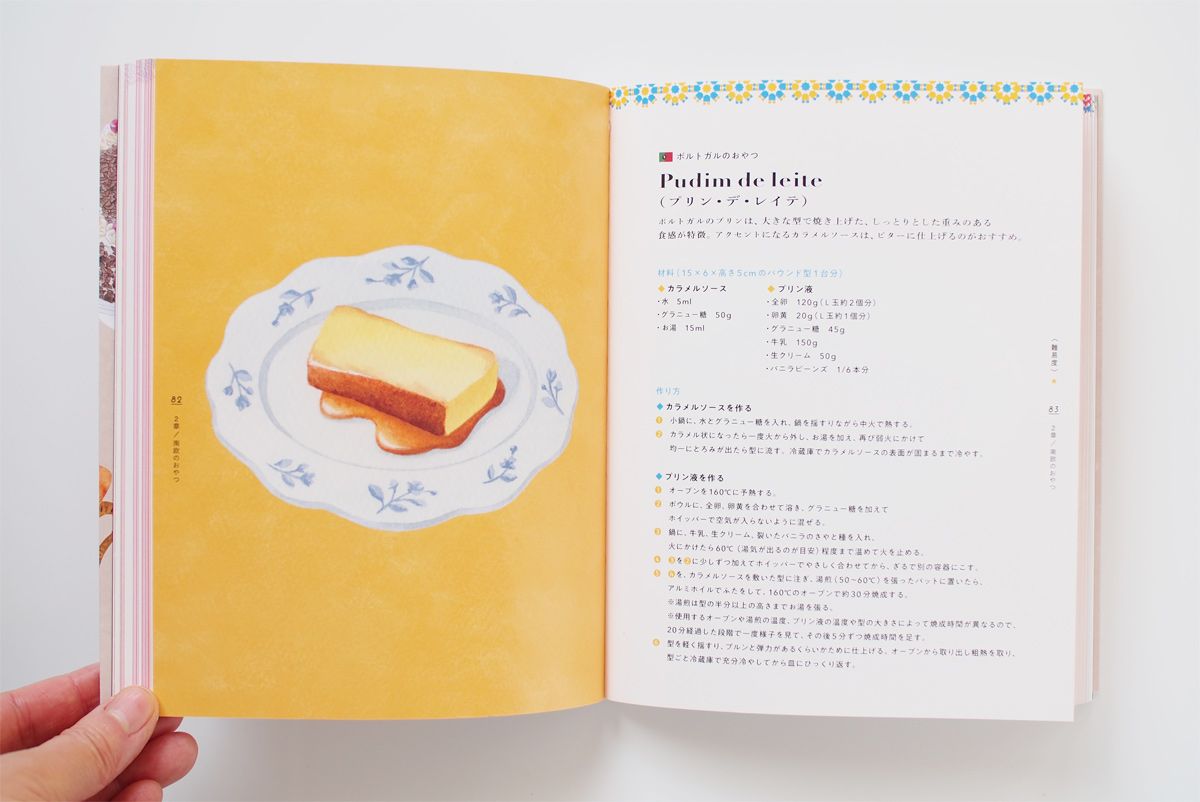 82
2章/南欧のおやつ
ポルトガルのおやつ
Pudim de leite
(プリン・デ・レイテ)
ポルトガルのプリンは、大きな型で焼き上げた、しっとりとした重みのある
食感が特徴。アクセントになるカラメルソースは、ビターに仕上げるのがおすすめ。
材料(15×6×高さ5cmのパウンド型1台分)
◆カラメルソース
・水 5ml
・グラニュー糖 50g
・お湯 15ml
◆プリン液
・全卵 120g(L玉約2個分)
・卵黄 20g(L玉約1個分)
・グラニュー糖 45g
・牛乳 150g
・生クリーム 50g
・バニラビーンズ 1/6本分
作り方
◆カラメルソースを作る
1 小鍋に、水とグラニュー糖を入れ、鍋を揺すりながら中火で熱する。
2 カラメル状になったら一度火から外し、お湯を加え、再び弱火にかけて
均一にとろみが出たら型に流す。冷蔵庫でカラメルソースの表面が固まるまで冷やす。
◆プリン液を作る
1 オーブンを160℃に予熱する。
2 ボウルに、全卵、卵黄を合わせて溶き、グラニュー糖を加えて
ホイッパーで空気が入らないように混ぜる。
3 鍋に、牛乳、生クリーム、裂いたバニラのさやと種を入れ、
火にかけたら60℃(湯気が出るのが目安)程度まで温めて火を止める。
4 3を2に少しずつ加えてホイッパーでやさしく合わせてから、ざるで別の容器にこす。
5 を、カラメルソースを敷いた型に注ぎ、湯煎(50〜60℃)を張ったバットに置いたら、
アルミホイルでふたをして、160℃のオーブンで約30分焼成する。
※湯煎は型の半分以上の高さまでお湯を張る。
※使用するオーブンや湯煎の温度、プリン液の温度や型の大きさによって焼成時間が異なるので、
20分経過した段階で一度様子を見て、その後5分ずつ焼成時間を足す。
6 型を軽く揺すり、プルンと弾力があるくらいかために仕上げる。オーブンから取り出し粗熱を取り、
型ごと冷蔵庫で充分冷やしてから皿にひっくり返す。
(難易度)★
83
2章/南欧のおやつ